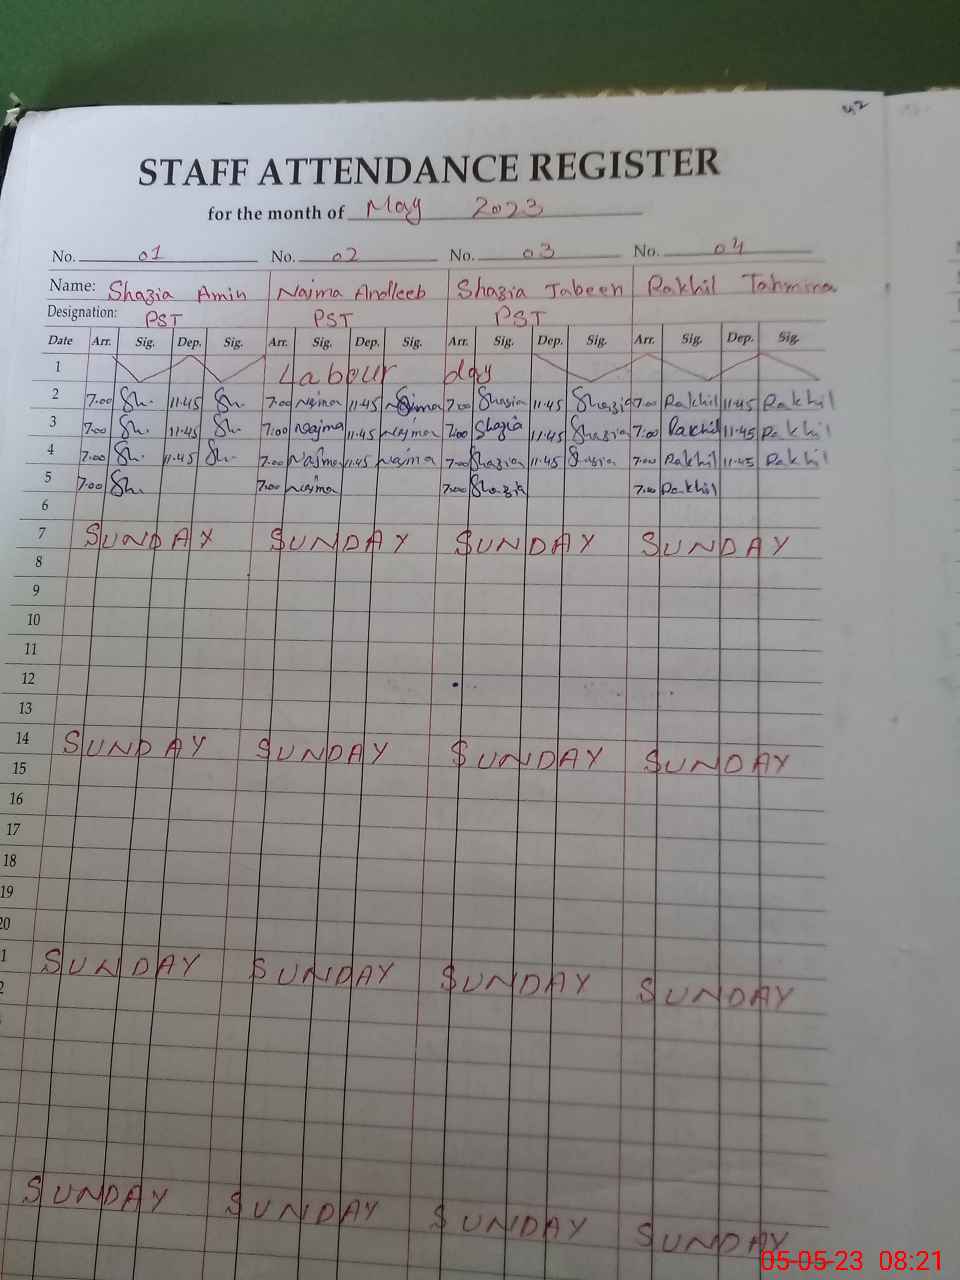 42
STAFF ATTENDANCE REGISTER
for the month of May 2023
No. 01 No. 02 No. 03 No. 04
Name: Shazia Amin Najma Andleeb Shazia Jabeen Rakhil Tahmina
Designation: PST PST PST
Date Arr. Sig. Dep. Sig. Arr. Sig. Dep. Sig. Arr. Sig. Dep. Sig. Arr. Sig. Dep. Sig.
1 Labour day
2 7:00 Sh. 11:45 Sh. 7:00 Najma 11:45 Najma 7:00 Shazia 11:45 Shazia 7:00 Rakhil 11:45 Rakhil
3 7:00 Sh. 11:45 Sh. 7:00 Najma 11:45 Najma 7:00 Shazia 11:45 Shazia 7:00 Rakhil 11:45 Rakhil
4 7:00 Sh. 11:45 Sh. 7:00 Najma 11:45 Najma 7:00 Shazia 11:45 Shazia 7:00 Rakhil 11:45 Rakhil
5 7:00 Sh. 7:00 Najma 7:00 Shazia 7:00 Rakhil
6
7 SUNDAY SUNDAY SUNDAY SUNDAY
8
9
10
11
12
13
14 SUNDAY SUNDAY SUNDAY SUNDAY
15
16
17
18
19
20
1 SUNDAY SUNDAY SUNDAY SUNDAY
2
SUNDAY SUNDAY SUNDAY SUNDAY
05-05-23 08:21